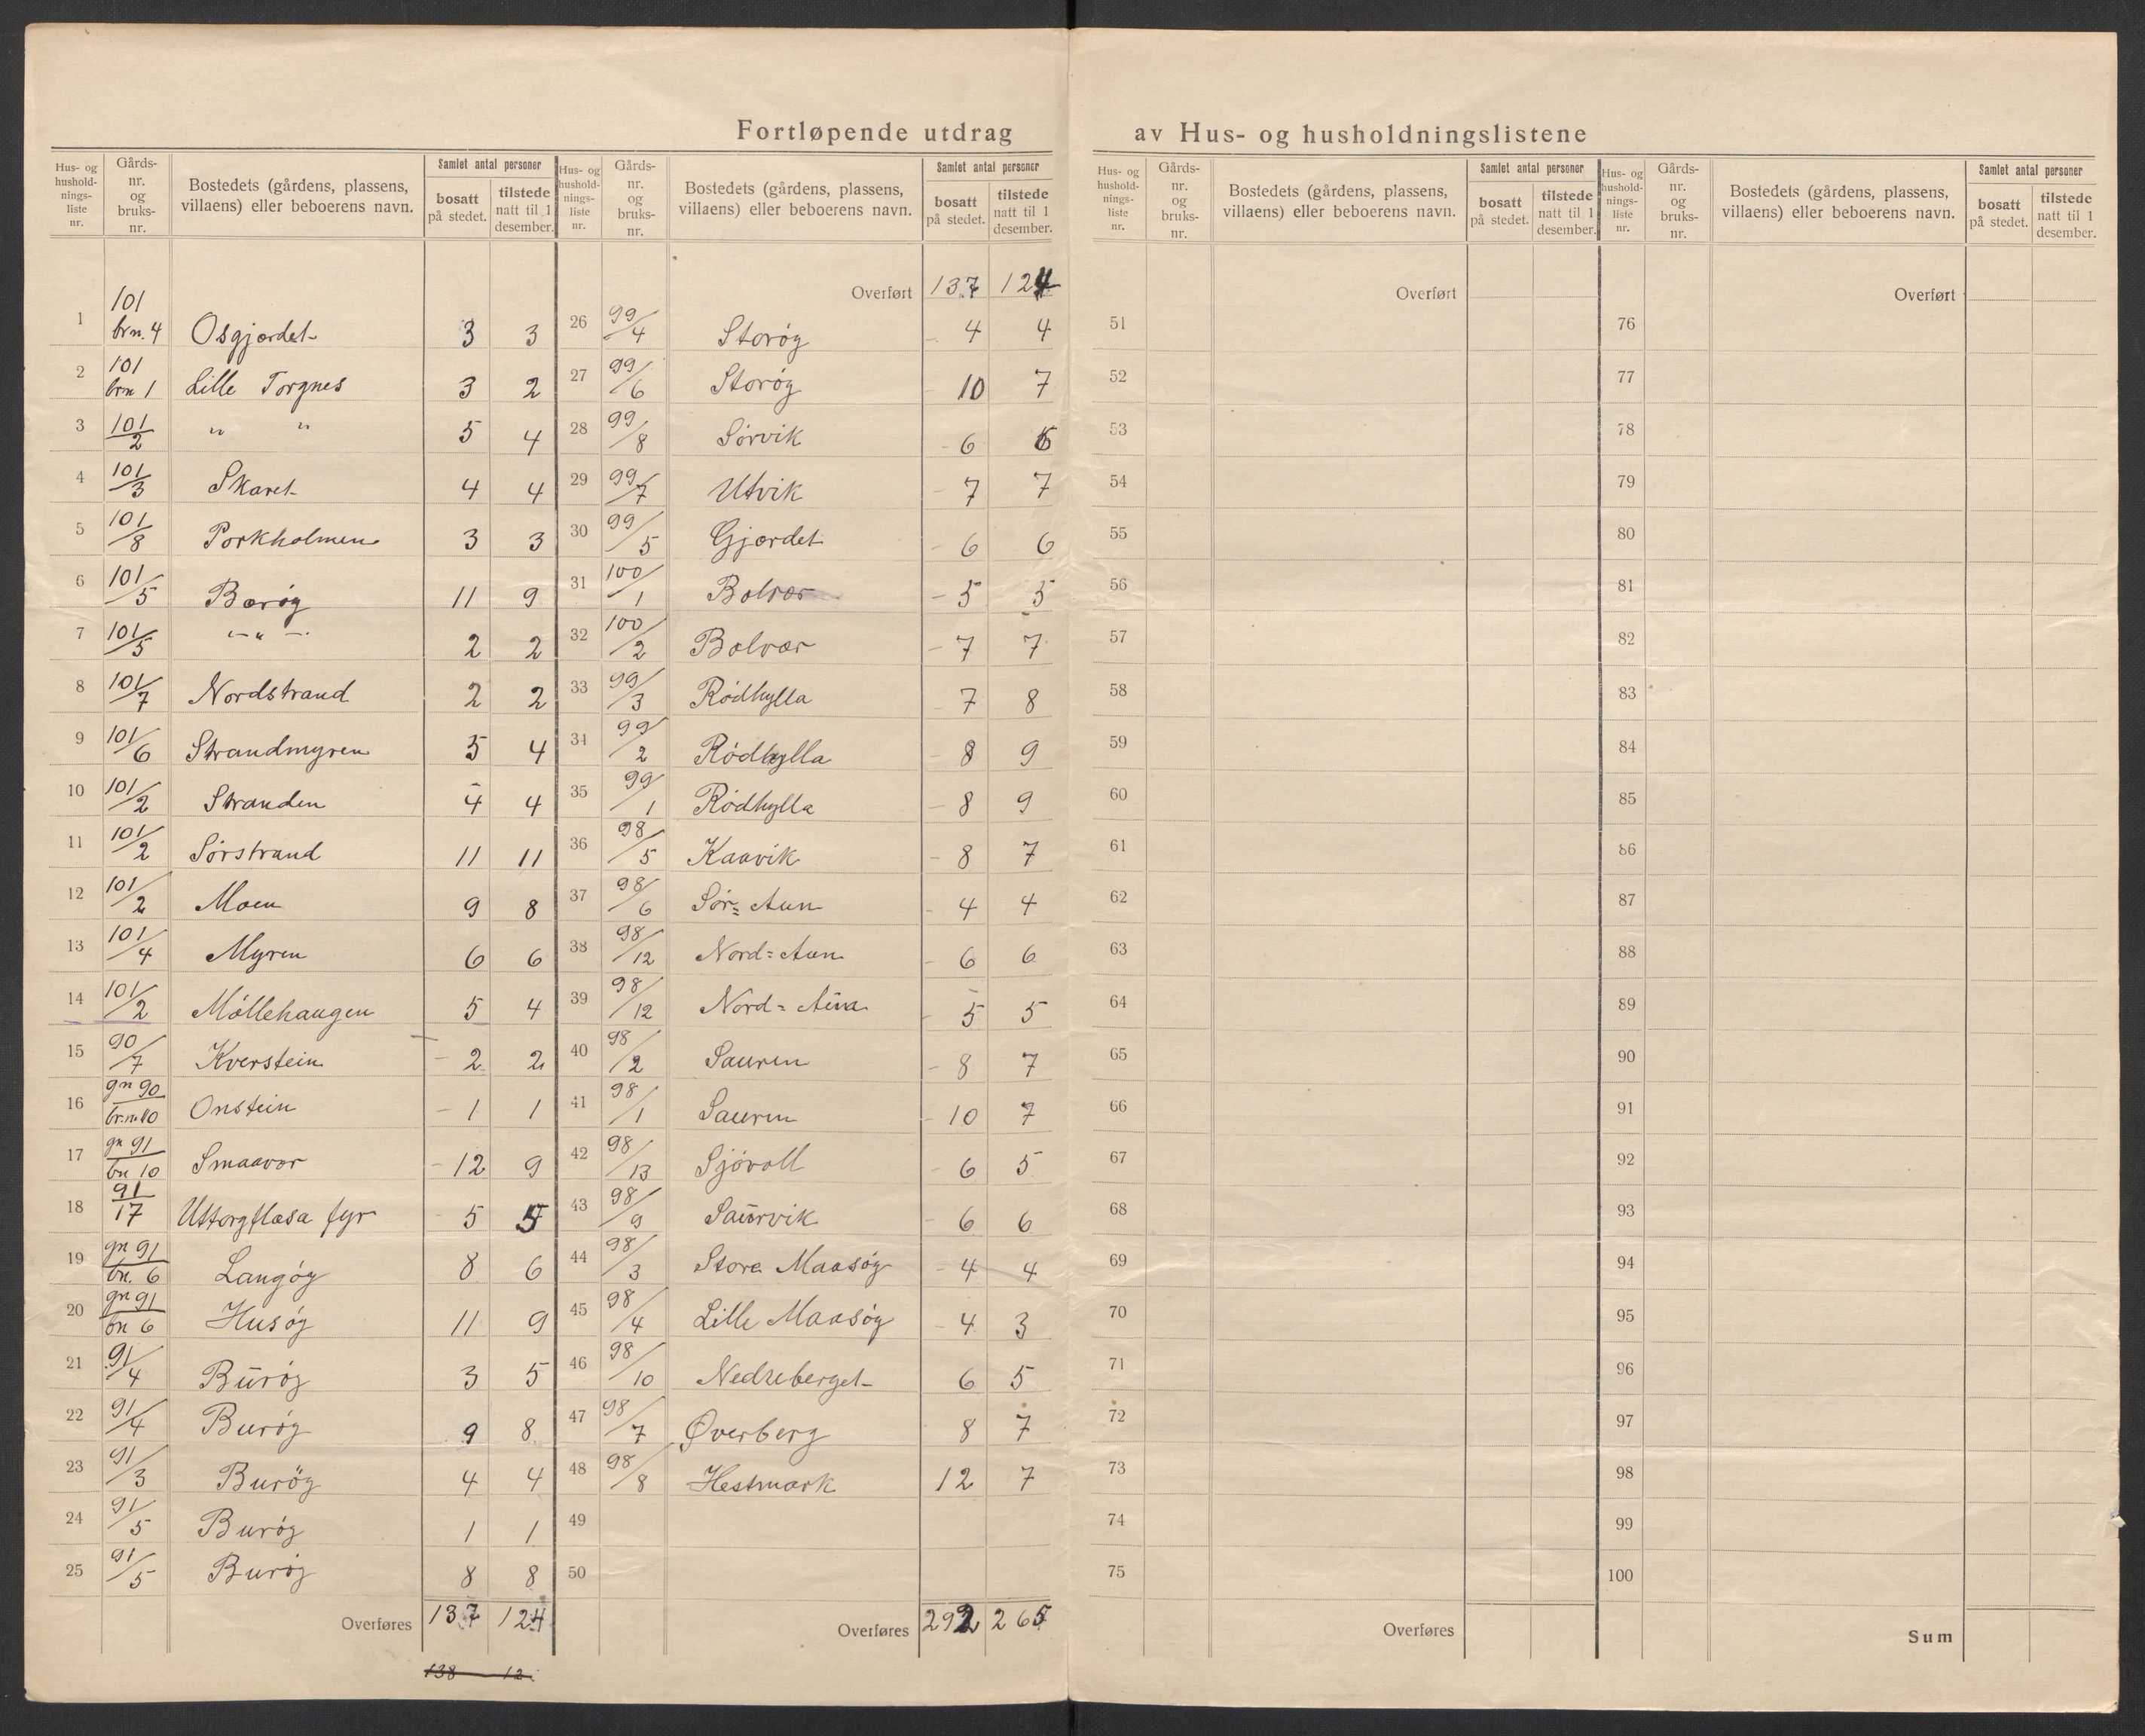 Fortløpende utdrag av Hus- og husholdningslistene
Hus- og husholdnings-liste nr. | Gårds-nr. og bruks-nr. | Bostedets (gårdens, plassens, villaens) eller beboerens navn. | Samlet antal personer | bosatt på stedet. | tilstede natt til 1 desember.
1 101 brn. 4 Osgjærdet 3 3
2 101 brn 1 Lille Torgnes 3 2
3 101/2 " " 5 4
4 101/3 Skaret 4 4
5 101/8 Porkholmen 3 3
6 101/5 Barøy 11 9
7 101/5 -"- 2 2
8 101/7 Nordstrand 2 2
9 101/6 Strandmyren 5 4
10 101/2 Stranden 4 4
11 101/2 Sörstrand 11 11
12 101/2 Moen 9 8
13 101/4 Myren 6 6
14 101/2 Möllehaugen 5 4
15 90/7 Kverstein - 2 2
16 gn 90 br.n. 10 Onstein - 1 1
17 gn 91 bn 10 Smaavær - 12 9
18 91/17 Uttorgflæsa fyr - 5 5
19 gn 91 bn. 6 Langöy 8 6
20 gn 91 bn 6 Husöy 11 9
21 91/4 Buröy 3 5
22 91/4 Buröy 9 8
23 91/3 Buröy 4 4
24 91/5 Buröy 1 1
25 91/5 Buröy 8 8
Overføres 137 124
138 12
Hus- og husholdnings-liste nr. | Gårds-nr. og bruks-nr. | Bostedets (gårdens, plassens, villaens) eller beboerens navn. | Samlet antal personer | bosatt på stedet. | tilstede natt til 1 desember.
Overført 137 124
26 99/4 Storöy - 4 4
27 99/6 Storöy - 10 7
28 99/8 Sörvik - 6 6
29 99/7 Utvik - 7 7
30 99/5 Gjærdet - 6 6
31 100/1 Bolvær - 5 5
32 100/2 Bolvær - 7 7
33 99/3 Rödhylla - 7 8
34 99/2 Rödhylla - 8 9
35 99/1 Rödhylla - 8 9
36 98/5 Kaavik - 8 7
37 98/6 Sör= Aun - 4 4
38 98/12 Nord= Aun - 6 6
39 98/12 Nord= - 5 5
40 98/2 Sauren - 8 7
41 98/1 Sauren - 10 7
42 98/13 Sjövoll - 6 5
43 98/9 Saurvik - 6 6
44 98/3 Store Maasöy - 4 4
45 98/4 Lille Maasöy - 4 3
46 98/10 Nedreberget 6 5
47 98/7 Øverberg 8 7
48 98/8 Hestmark 12 7
49
50
Overføres 292 265
Hus- og hushold-nings-liste nr. | Gårds-nr. og bruks-nr. | Bostedets (gårdens, plassens, villaens) eller beboerens navn. | Samlet antal personer | bosatt på stedet. | tilstede natt til 1 desember.
Overført
51
52
53
54
55
56
57
58
59
60
61
62
63
64
65
66
67
68
69
70
71
72
73
74
75
Overføres
Hus- og hushold-nings-liste nr. | Gårds-nr. og bruks-nr. | Bostedets (gårdens, plassens, villaens) eller beboerens navn. | Samlet antal personer | bosatt på stedet. | tilstede natt til 1 desember.
Overført
76
77
78
79
80
81
82
83
84
85
86
87
88
89
90
91
92
93
94
95
96
97
98
99
100
Sum